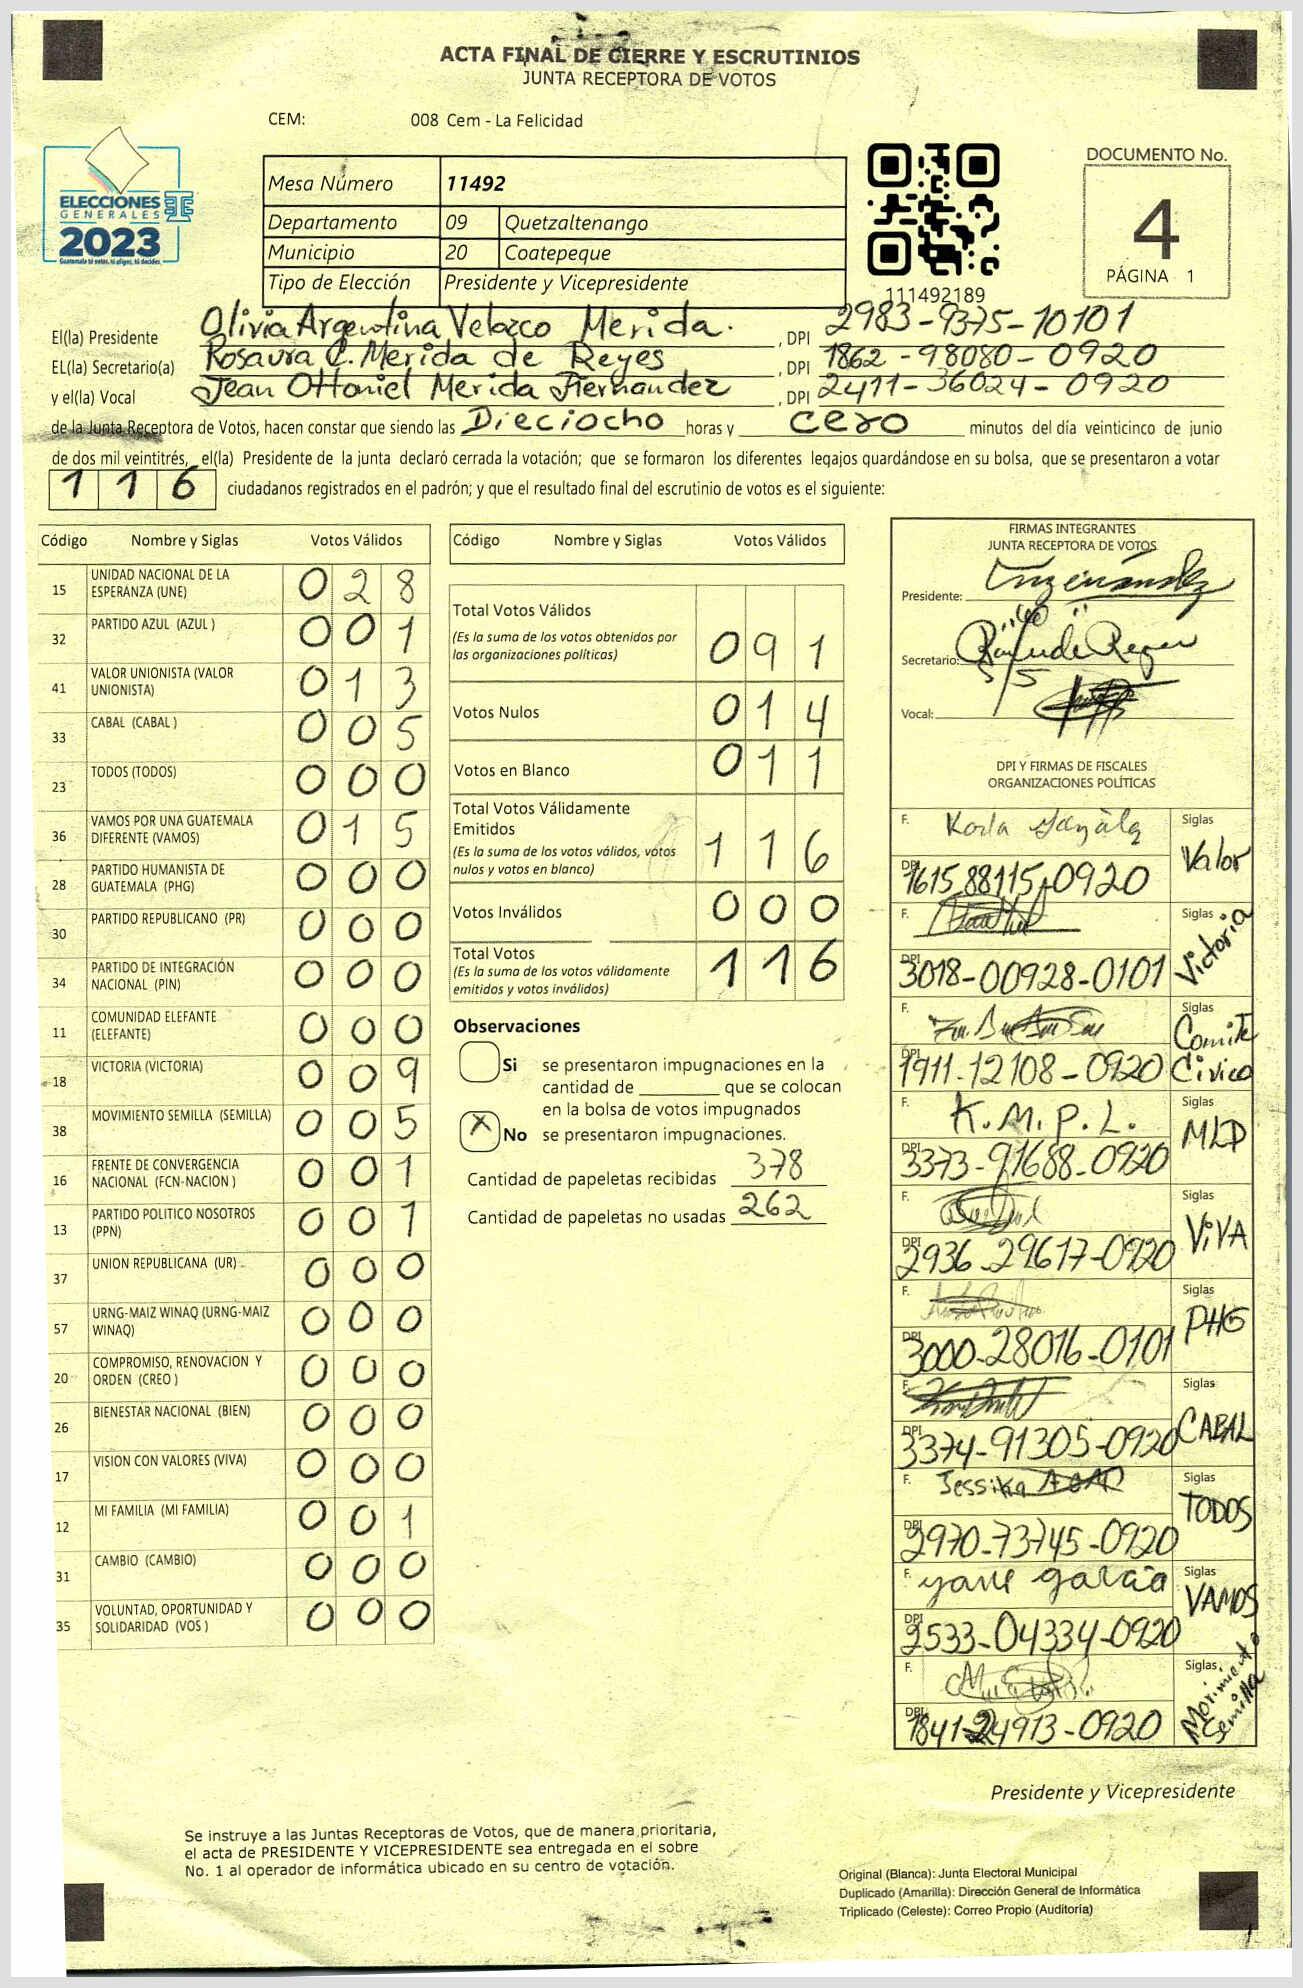 ACTA FINAL DE CIERRE Y ESCRUTINIOS
JUNTA RECEPTORA DE VOTOS
CEM: 008 Cem - La Felicidad
ELECCIONES
GENERALES
2023
Guatemala tú votas, tú eliges, tú decides.
Mesa Número 11492
Departamento 09 Quetzaltenango
Municipio 20 Coatepeque
Tipo de Elección Presidente y Vicepresidente
111492189
DOCUMENTO No.
4
PÁGINA 1
El(la) Presidente Olivia Argentina Velazco Merida. , DPI 2983-9375-10101
EL(la) Secretario(a) Rosaura C. Merida de Reyes , DPI 1862-98080-0920
y el(la) Vocal Jean Ottoniel Merida Hernandez , DPI 2411-36024-0920
de la Junta Receptora de Votos, hacen constar que siendo las Dieciocho horas y cero minutos del día veinticinco de junio
de dos mil veintitrés, el(la) Presidente de la junta declaró cerrada la votación; que se formaron los diferentes legajos guardándose en su bolsa, que se presentaron a votar
116 ciudadanos registrados en el padrón; y que el resultado final del escrutinio de votos es el siguiente:
Código Nombre y Siglas Votos Válidos
15 UNIDAD NACIONAL DE LA ESPERANZA (UNE) 028
32 PARTIDO AZUL (AZUL ) 001
41 VALOR UNIONISTA (VALOR UNIONISTA) 013
33 CABAL (CABAL ) 005
23 TODOS (TODOS) 000
36 VAMOS POR UNA GUATEMALA DIFERENTE (VAMOS) 015
28 PARTIDO HUMANISTA DE GUATEMALA (PHG) 000
30 PARTIDO REPUBLICANO (PR) 000
34 PARTIDO DE INTEGRACIÓN NACIONAL (PIN) 000
11 COMUNIDAD ELEFANTE (ELEFANTE) 000
18 VICTORIA (VICTORIA) 009
38 MOVIMIENTO SEMILLA (SEMILLA) 005
16 FRENTE DE CONVERGENCIA NACIONAL (FCN-NACION ) 001
13 PARTIDO POLITICO NOSOTROS (PPN) 001
37 UNION REPUBLICANA (UR) 000
57 URNG-MAIZ WINAQ (URNG-MAIZ WINAQ) 000
20 COMPROMISO, RENOVACION Y ORDEN (CREO ) 000
26 BIENESTAR NACIONAL (BIEN) 000
17 VISION CON VALORES (VIVA) 000
12 MI FAMILIA (MI FAMILIA) 001
31 CAMBIO (CAMBIO) 000
35 VOLUNTAD, OPORTUNIDAD Y SOLIDARIDAD (VOS ) 000
Código Nombre y Siglas Votos Válidos
Total Votos Válidos
(Es la suma de los votos obtenidos por
las organizaciones políticas) 091
Votos Nulos 014
Votos en Blanco 011
Total Votos Válidamente
Emitidos
(Es la suma de los votos válidos, votos
nulos y votos en blanco) 116
Votos Inválidos 000
Total Votos
(Es la suma de los votos válidamente
emitidos y votos inválidos) 116
Observaciones
Si se presentaron impugnaciones en la
cantidad de ________ que se colocan
en la bolsa de votos impugnados
X No se presentaron impugnaciones.
Cantidad de papeletas recibidas 378
Cantidad de papeletas no usadas 262
FIRMAS INTEGRANTES
JUNTA RECEPTORA DE VOTOS
Presidente:
Secretario:
Vocal:
DPI Y FIRMAS DE FISCALES
ORGANIZACIONES POLÍTICAS
F. Karla Siglas
DPI 1615 88115-0920 Valor
F. Siglas
DPI 3018-00928-0101 Victoria
F. Siglas
DPI 1911-12108-0920 Comite Civico
F. K.M.P.L. Siglas
DPI 3373-91688-0920 MLP
F. Siglas
DPI 2936-29617-0920 ViVA
F. Siglas
DPI 3000-28016-0101 PHG
F. Siglas
DPI 3374-91305-0920 CABAL
F. Jessika Siglas
DPI 2970-73745-0920 TODOS
F. garcia Siglas
DPI 2533-04334-0920 VAMOS
F. Siglas
DPI 1841-24913-0920 Movimiento Semilla
Presidente y Vicepresidente
Se instruye a las Juntas Receptoras de Votos, que de manera prioritaria,
el acta de PRESIDENTE Y VICEPRESIDENTE sea entregada en el sobre
No. 1 al operador de informática ubicado en su centro de votación.
Original (Blanca): Junta Electoral Municipal
Duplicado (Amarilla): Dirección General de Informática
Triplicado (Celeste): Correo Propio (Auditoría)